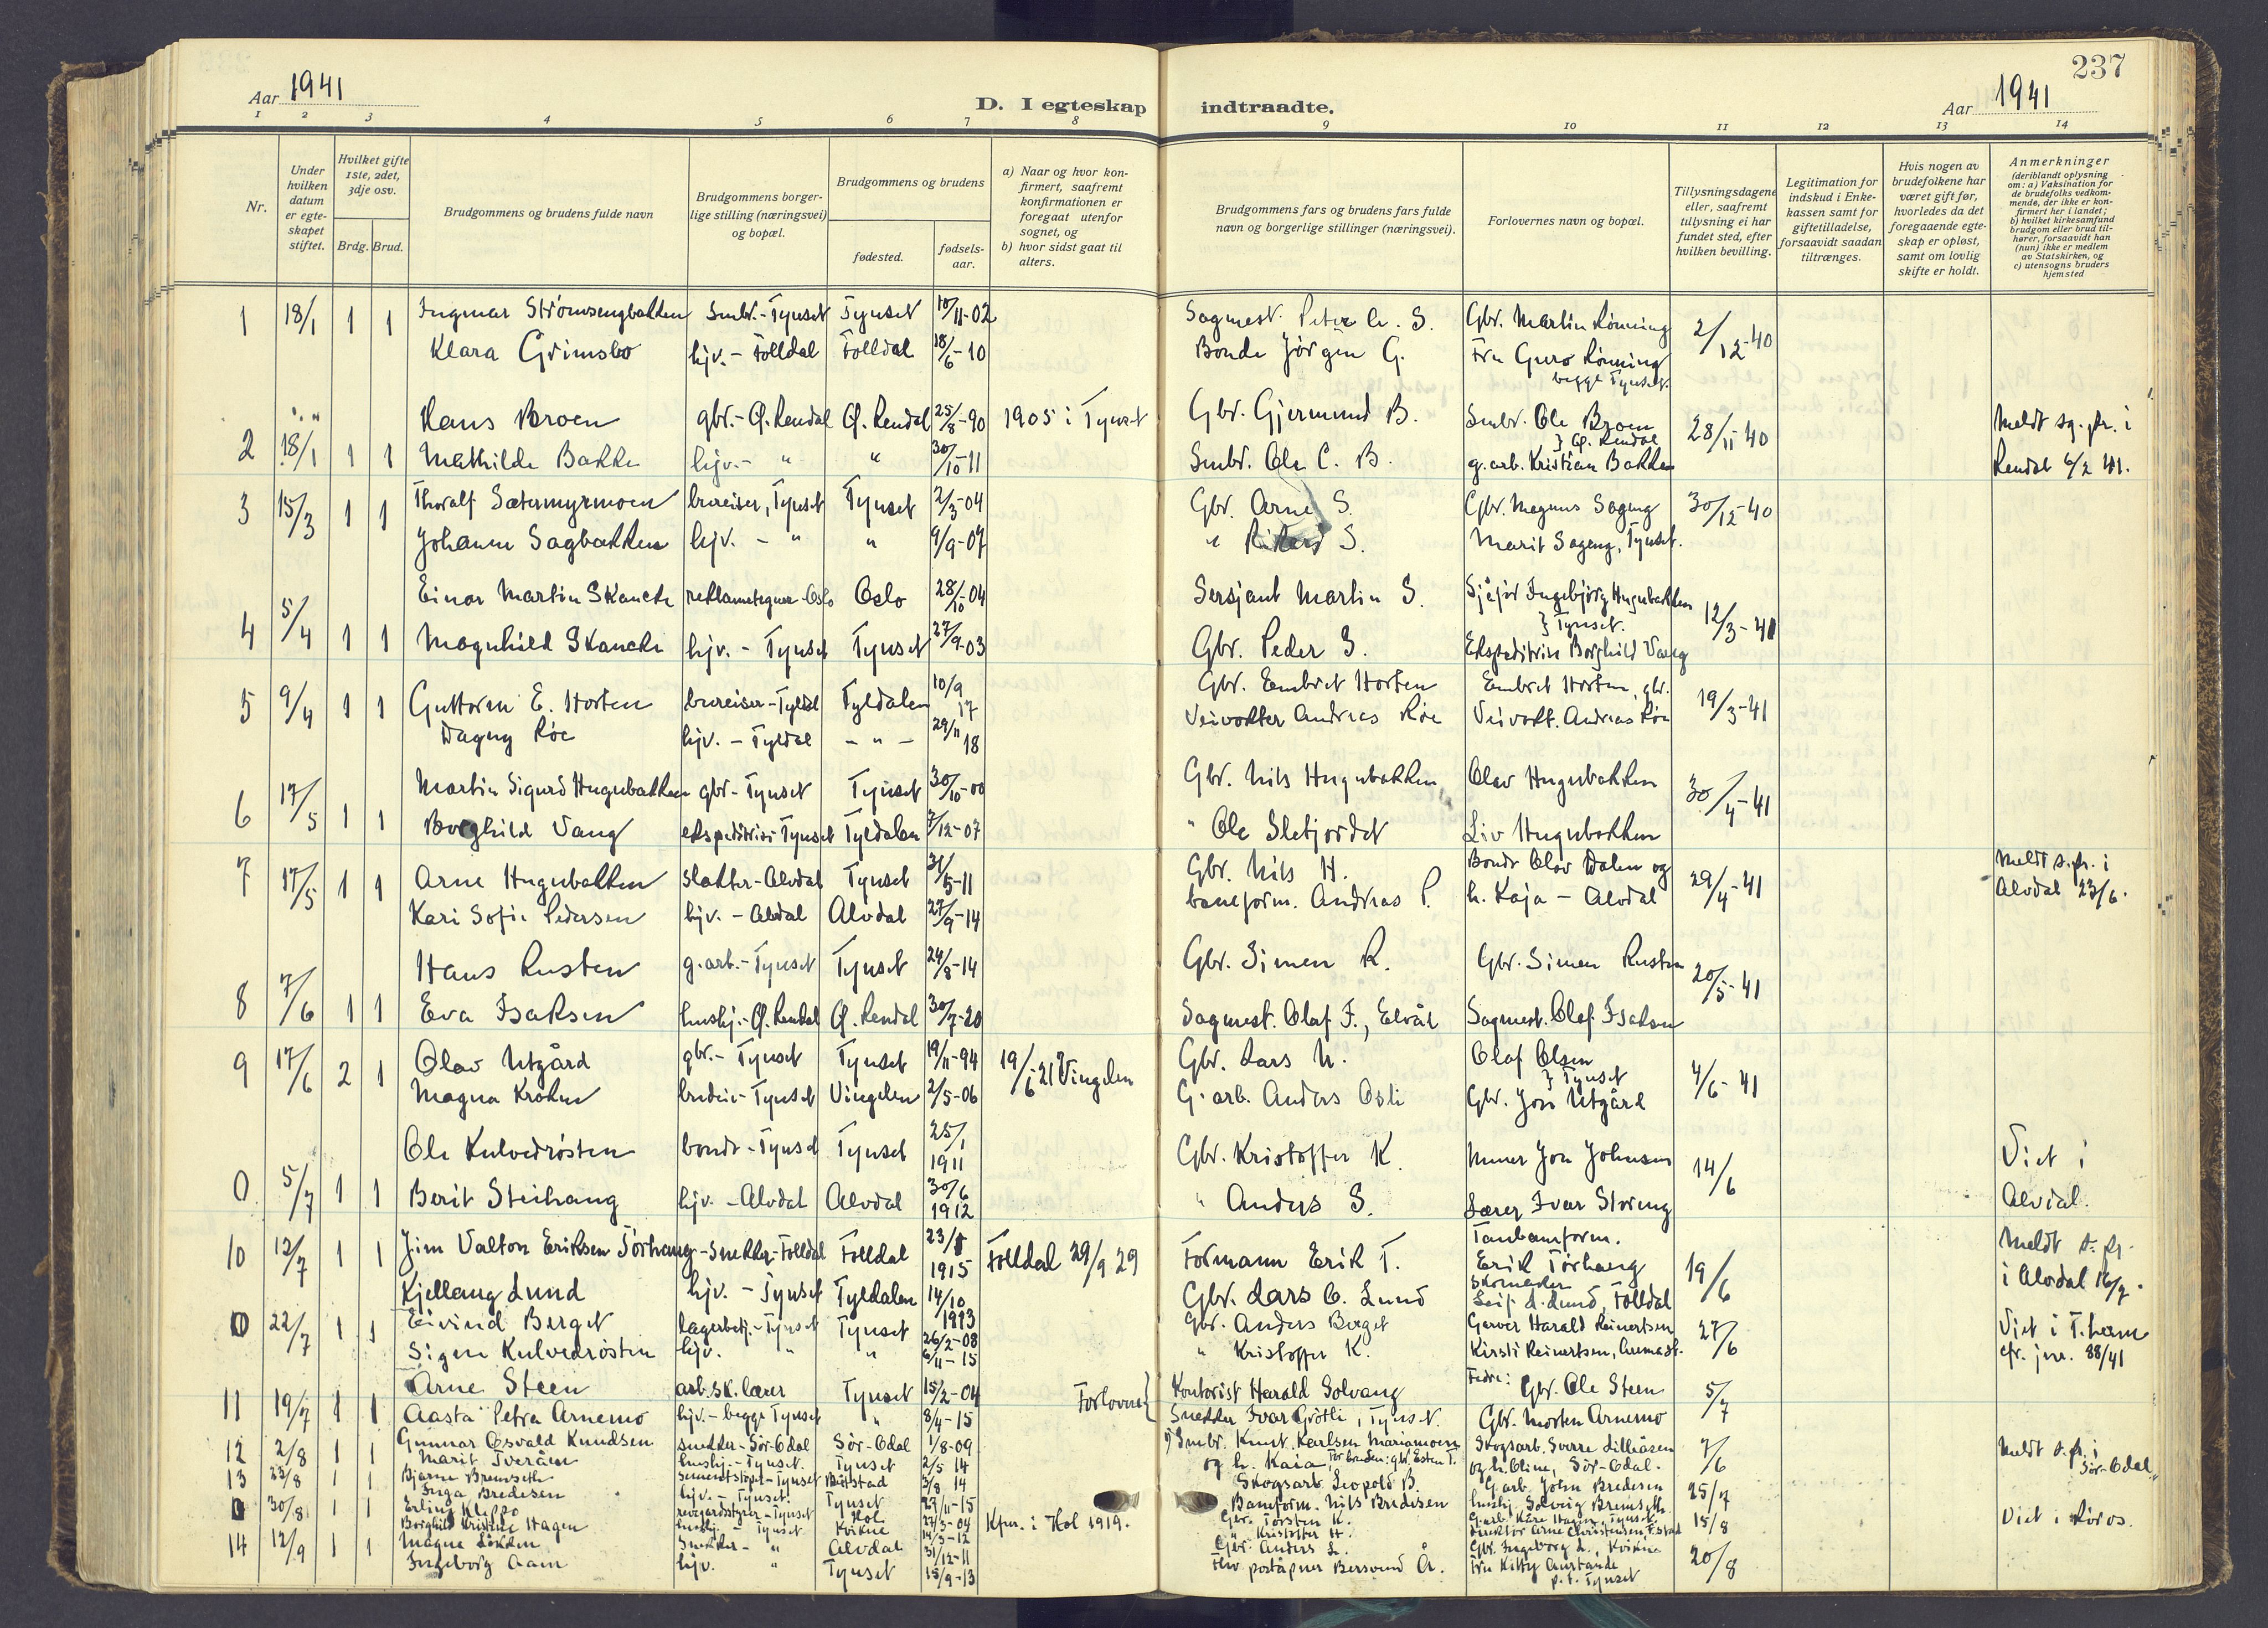 237
Aar 1941
D. I egteskap indtraadte.
Aar 1941
1 2 3 4 5 6 7 8 9 10 11 12 13 14
Nr.
Under hvilken datum er egteskapet stiftet.
Hvilket gifte 1ste, 2det, 3dje osv.
Brdg. Brud.
Brudgommens og brudens fulde navn
Brudgommens borgerlige stilling (næringsvei) og bopæl.
Brudgommens og brudens
fødested.
fødselsaar.
a) Naar og hvor konfirmert, saafremt konfirmationen er foregaat utenfor sognet, og
b) hvor sidst gaat til alters.
Brudgommens fars og brudens fars fulde navn og borgerlige stillinger (næringsvei).
Forlovernes navn og bopæl.
Tillysningsdagene eller, saafremt tillysning ei har fundet sted, efter hvilken bevilling.
Legitimation for indskud i Enkekassen samt for giftetilladelse, forsaavidt saadan tiltrænges.
Hvis nogen av brudefolkene har været gift før, hvorledes da det foregaaende egteskap er opløst, samt om lovlig skifte er holdt.
Anmerkninger
(deriblandt oplysning om: a) Vaksination for de brudefolks vedkommende, der ikke er konfirmert her i landet; b) hvilket kirkesamfund brudgom eller brud tilhører, forsaavidt han (hun) ikke er medlem av Statskirken, og c) utensogns bruders hjemsted
1 18/1 1 1 Ingmar Strømsengbakken Smbr.-Tynset Tynset 10/11-02 Sagmest. Peter S. Gbr. Martin Rønning 2/12-40
Klara Grimsbo hjv.-Folldal Folldal 18/6-10 Bonde Jørgen G. Fru Guro Rønning
begge Tynset.
Hans Broen gbr.-Ø. Rendal Ø. Rendal 25/8-90 1905 i Tynset Gbr. Gjermund B. Smbr. Ole Broen 28/11-40 Meldt sg. pr. i
} Ø. Rendal
2 18/1 1 1 Mathilde Bakke hjv.- " " 30/10-11 Smbr. Ole C. B. g.arb. Kristian Bakken Rendal 6/2 41.
3 15/3 1 1 Thoralf Sætermyrmoen bureiser, Tynset Tynset 2/3-04 Gbr. Arne S. Gbr. Magnus Sageng 30/12-40
Johanne Sagbakken hjv. - " " 9/9-07 " S. Marit Sageng, Tynset.
Einar Martin Skancke reklametegner-Oslo Oslo 28/10-04 Sersjant Martin S. Ingebjørg Hugubakken 12/3-41
} Tynset.
4 5/4 1 1 Magnhild Skancke hjv. - Tynset Tynset 27/9-03 Gbr. Peder S. Ekspeditrise Borghild Vang
5 9/4 1 1 Guttorm E. Horten bureiser-Tyldal Tyldalen 10/9 17 Gbr. Embret Horten Embret Horten, gbr. 19/3-41
Dagny Røe hjv. - Tyldal - " - 29/11 18 Veivokter Andreas Røe Veivokt. Andreas Røe
6 17/5 1 1 Martin Sigurd Hugubakken gbr-Tynset Tynset 30/10-00 Gbr. Nils Hugubakken Olav Hugubakken 30/4-41
Borghild Vang ekspeditrise-Tynset Tyldalen 7/12-07 " Ole Sletjordet Liv Hugubakken
7 17/5 1 1 Arne Hugubakken slakter-Alvdal Tynset 31/5-11 Gbr. Nils H. Bonde Olav Dalen og 29/4-41 Meldt s.pr. i
Kari Sofie Pedersen hjv. - Alvdal Alvdal 27/9-14 baneform. Andreas P. h. Kaja - Alvdal Alvdal 23/6.
Hans Rusten g.arb.-Tynset Tynset 24/8-14 Gbr. Simen R. Gbr. Simen Rusten 20/5-41
8 7/6 1 1 Eva Isaksen hushj.-Ø. Rendal Ø. Rendal 30/7-20 Sagmest. Olaf I., Elvål Sagmest. Olaf Isaksen
9 17/6 2 1 Olav Utgård gbr.- Tynset Tynset 19/11-94 19/6-21 Vingelen Gbr. Lars U. Olaf Olsen 4/6-41
} Tynset
Magna Krohn Tynset Vingelen 2/5-06 G.arb. Anders Osli Gbr. Jon Utgård
Ole Kulvedrøsten bonde-Tynset Tynset 25/1 1911 Gbr. Kristoffer K. Murer Jon Johnsen 14/6 Viet i
0 5/7 1 1 Berit Steihaug hjv. - Alvdal Alvdal 30/6 1912 " Anders S. Lærer Ivar Storeng Alvdal.
10 12/7 1 1 Jim Valton Eriksen Törhaug-Snekker-Folldal Folldal 23/8 1915 Folldal 29/9 29 Formann Erik T. Taubanform. Erik Törhaug 19/6 Meldt s. pr.
Kjellaug Lund hjv. - Tynset Tyldalen 14/10 Gbr. Lars O. Lund Skomaker Leif L. Lund, Folldal i Alvdal 16/7.
0 22/7 1 1 Eivind Berget lagerbetj.-Tynset Tynset 26/2-08 Gbr. Anders Berget Garver Harald Reinertsen 27/6 Viet i T.heim
Signe Kulvedrøsten hjv. " " 6/11-15 " Kristoffer K. Kirsti Reinertsen, cfr. jnr. 88/41
11 19/7 1 1 Arne Steen arb.sk.lærer Tynset 15/2-04 Forlovere { Kontorist Harald Solvang Fedre: Gbr. Ole Steen 5/7
Aasta Petra Arnemo hjv.-begge Tynset " 8/4-15 Snekker Ivar Grötli, Tynset. Gbr. Morten Arnemo
12 2/8 1 1 Gunnar Osvald Knudsen snekker-Sör-Odal Sör-Odal 1/8-09 Smbr. Knut Karlsen Mariamoen Skogsarb. Sverre Lilleåsen 7/6 Meldt s.pr. i
Marit Tveråen hushj.-Tynset. Tynset 2/5 14 og h. Kaia For bruden: gbr. Esten T. og h. Oline, Sör-Odal. Sör-Odal
13 23/8 1 1 Bjarne Bremseth Tynset 3/8 14 Skogsarb. Leopold B. G.arb. John Bredesen 25/7
Inga Bredesen hjv. - Tynset. Tynset 27/11-15 Baneform. Nils Bredesen hushj. Solveig Bremseth
30/8 1 1 Erling Kleppo revegårdsstyrer-Tynset Hol 27/3-04 Kfm. i Hol 1919. Gbr. Torsten K. G.arb. Kåre Hagen, Tynset. 15/8 Viet i Röros.
Borghild Kristine Hagen hushj. - Tynset Kvikne 14/3-12 " Kristoffer H. Direktör Arne Christensen
14 12/9 1 1 Magne Løkken Snekker- " Alvdal 31/12-11 Gbr. Anders L. Gbr. Ingeborg L., Kvikne 20/8
Ingeborg Aaen hjv. " Tynset 15/9-13 poståpner Bersvend Å. Fru Kitty Aurstande
p.t. Tynset